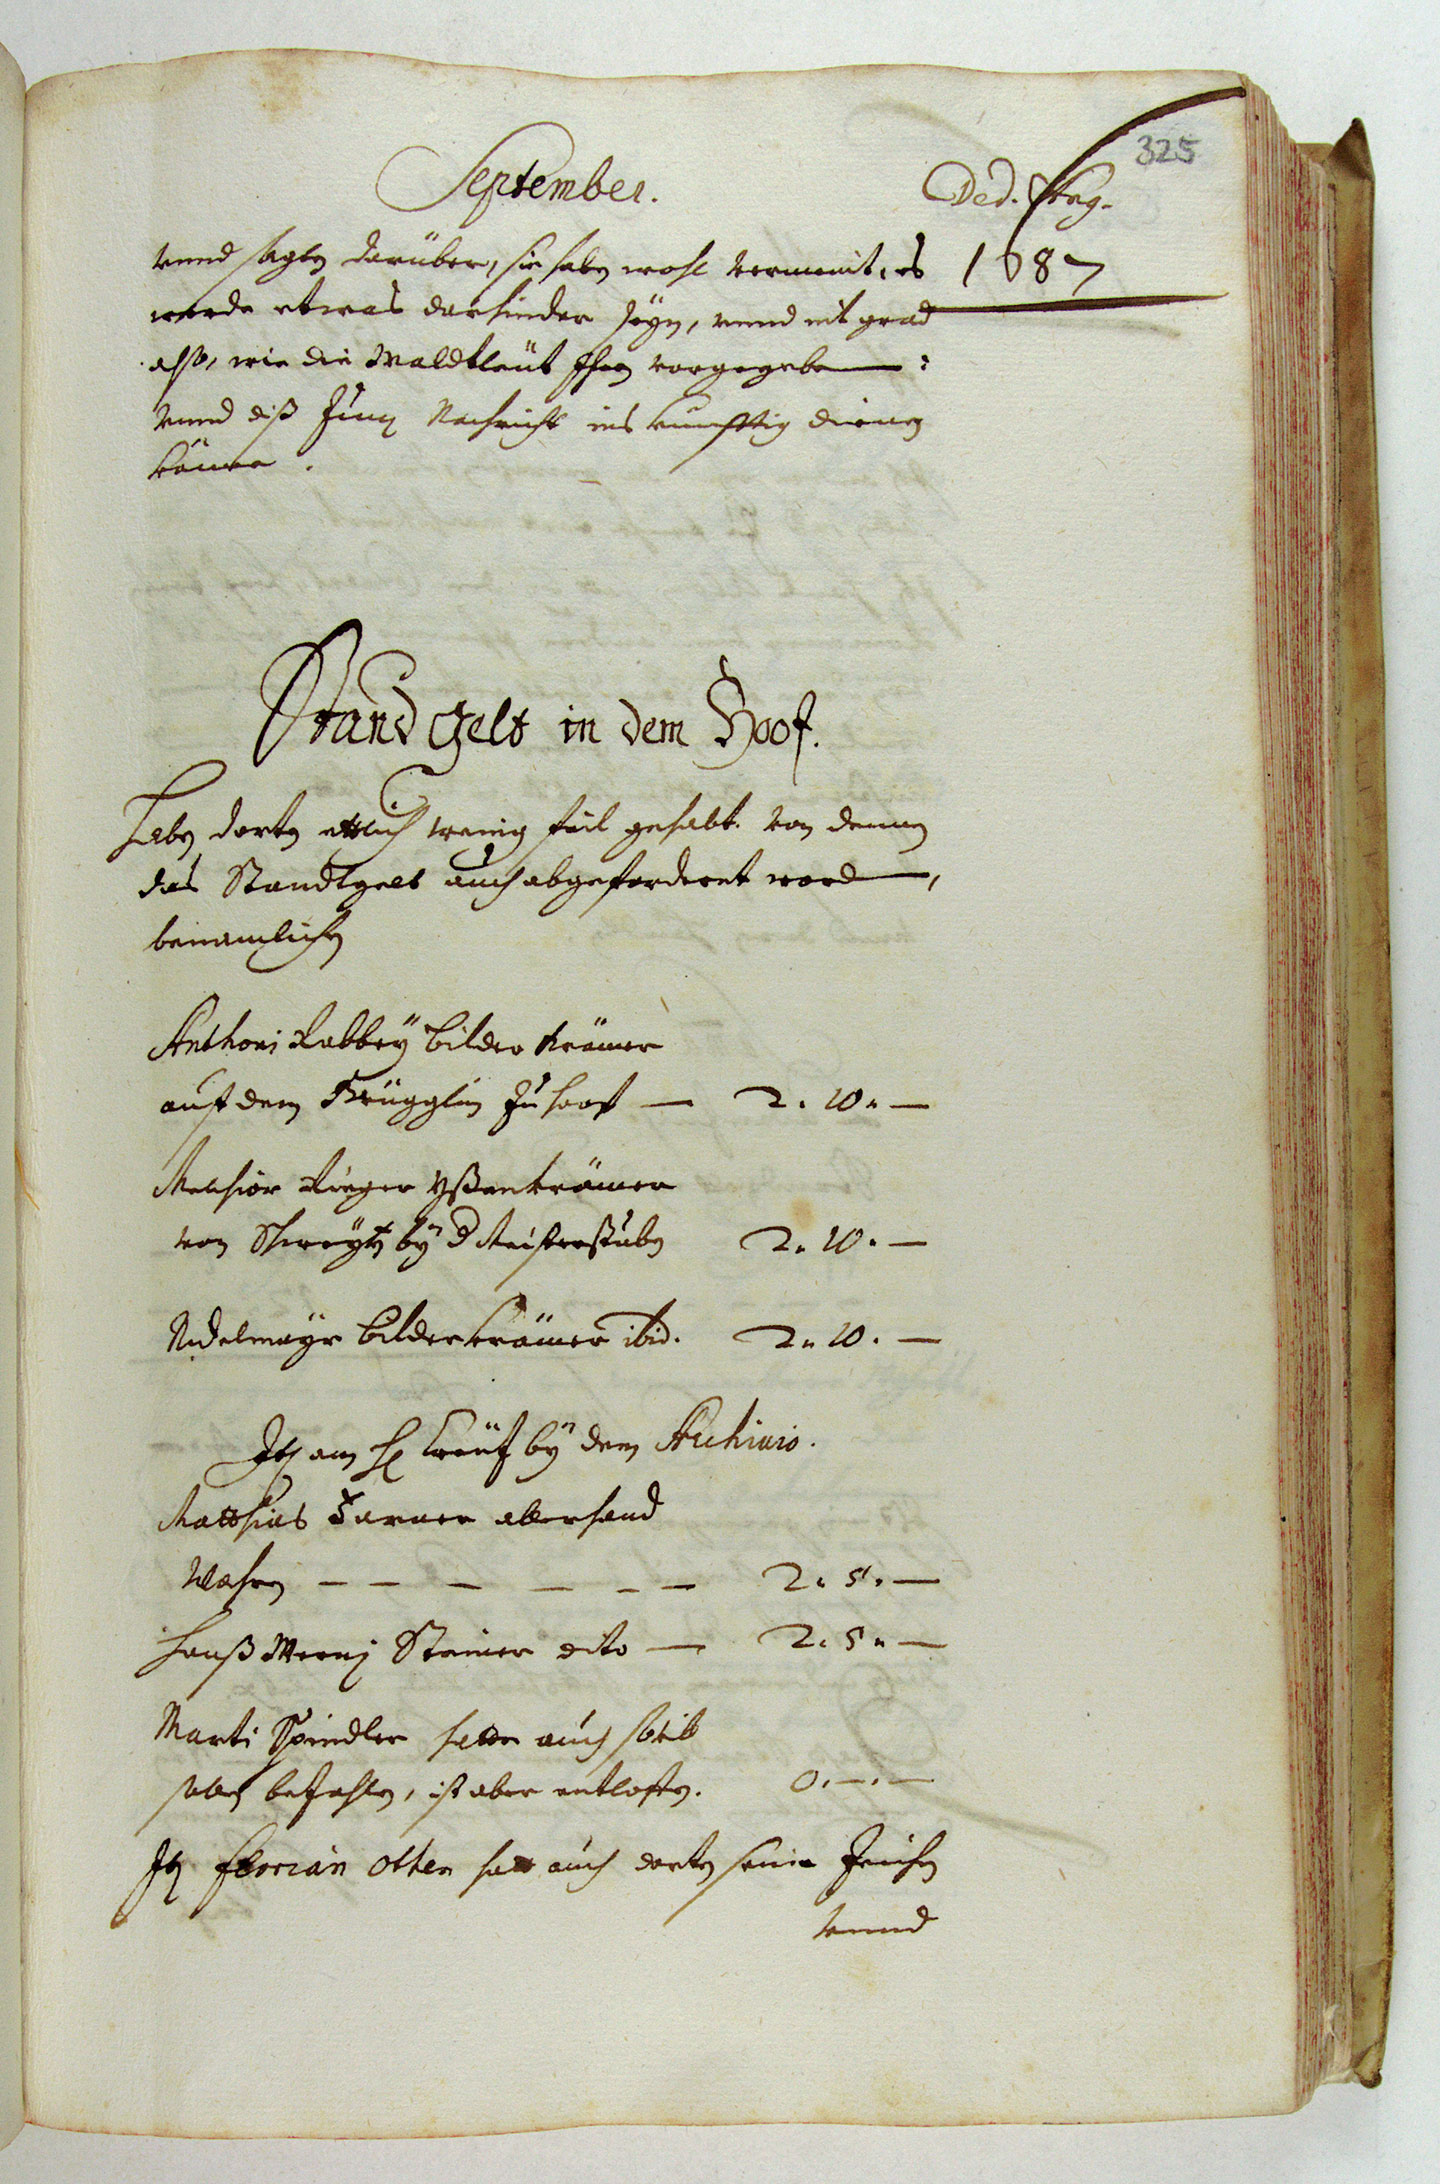 325
September. Ded. Ang.
vnnd sagten darüber, sie haben wohl vermeint, es 1687
werde etwas darhinder seyn, vnnd nit grad
also, wie die Waldtleüt Ihnen vorgegeben:
vnnd diß zuoy Nachricht ins künfftig dienen
könne.
Stand Gelt in dem Hoof.
Haben dorten ettlich wenig feil gehabt. von denen
das Standtgelt auch abgeforderet worden,
benamlichen
Anthoni Rabbey bilder krämer
auf dem Brügglin zu hoof — 2. 10. —
Melchior Rieger Yßenkrämer
von Schweytz bÿ d Meisterstuben 2. 10. —
Nidelmayr bilderkrämer ibid. 2. 10. —
Itē am H. Creütz bÿ dem Archivio.
Matthias Farner allerhand
Wahren — — — — — — 2. 5. —
Hanß Werni Steiner dito — 2. 5. —
Marti Spindler hette auch sovil
sollen bezahlen, ist aber entloffen. 0. —. —
Itē Florian Otten hatt auch dorten seine
vnnd